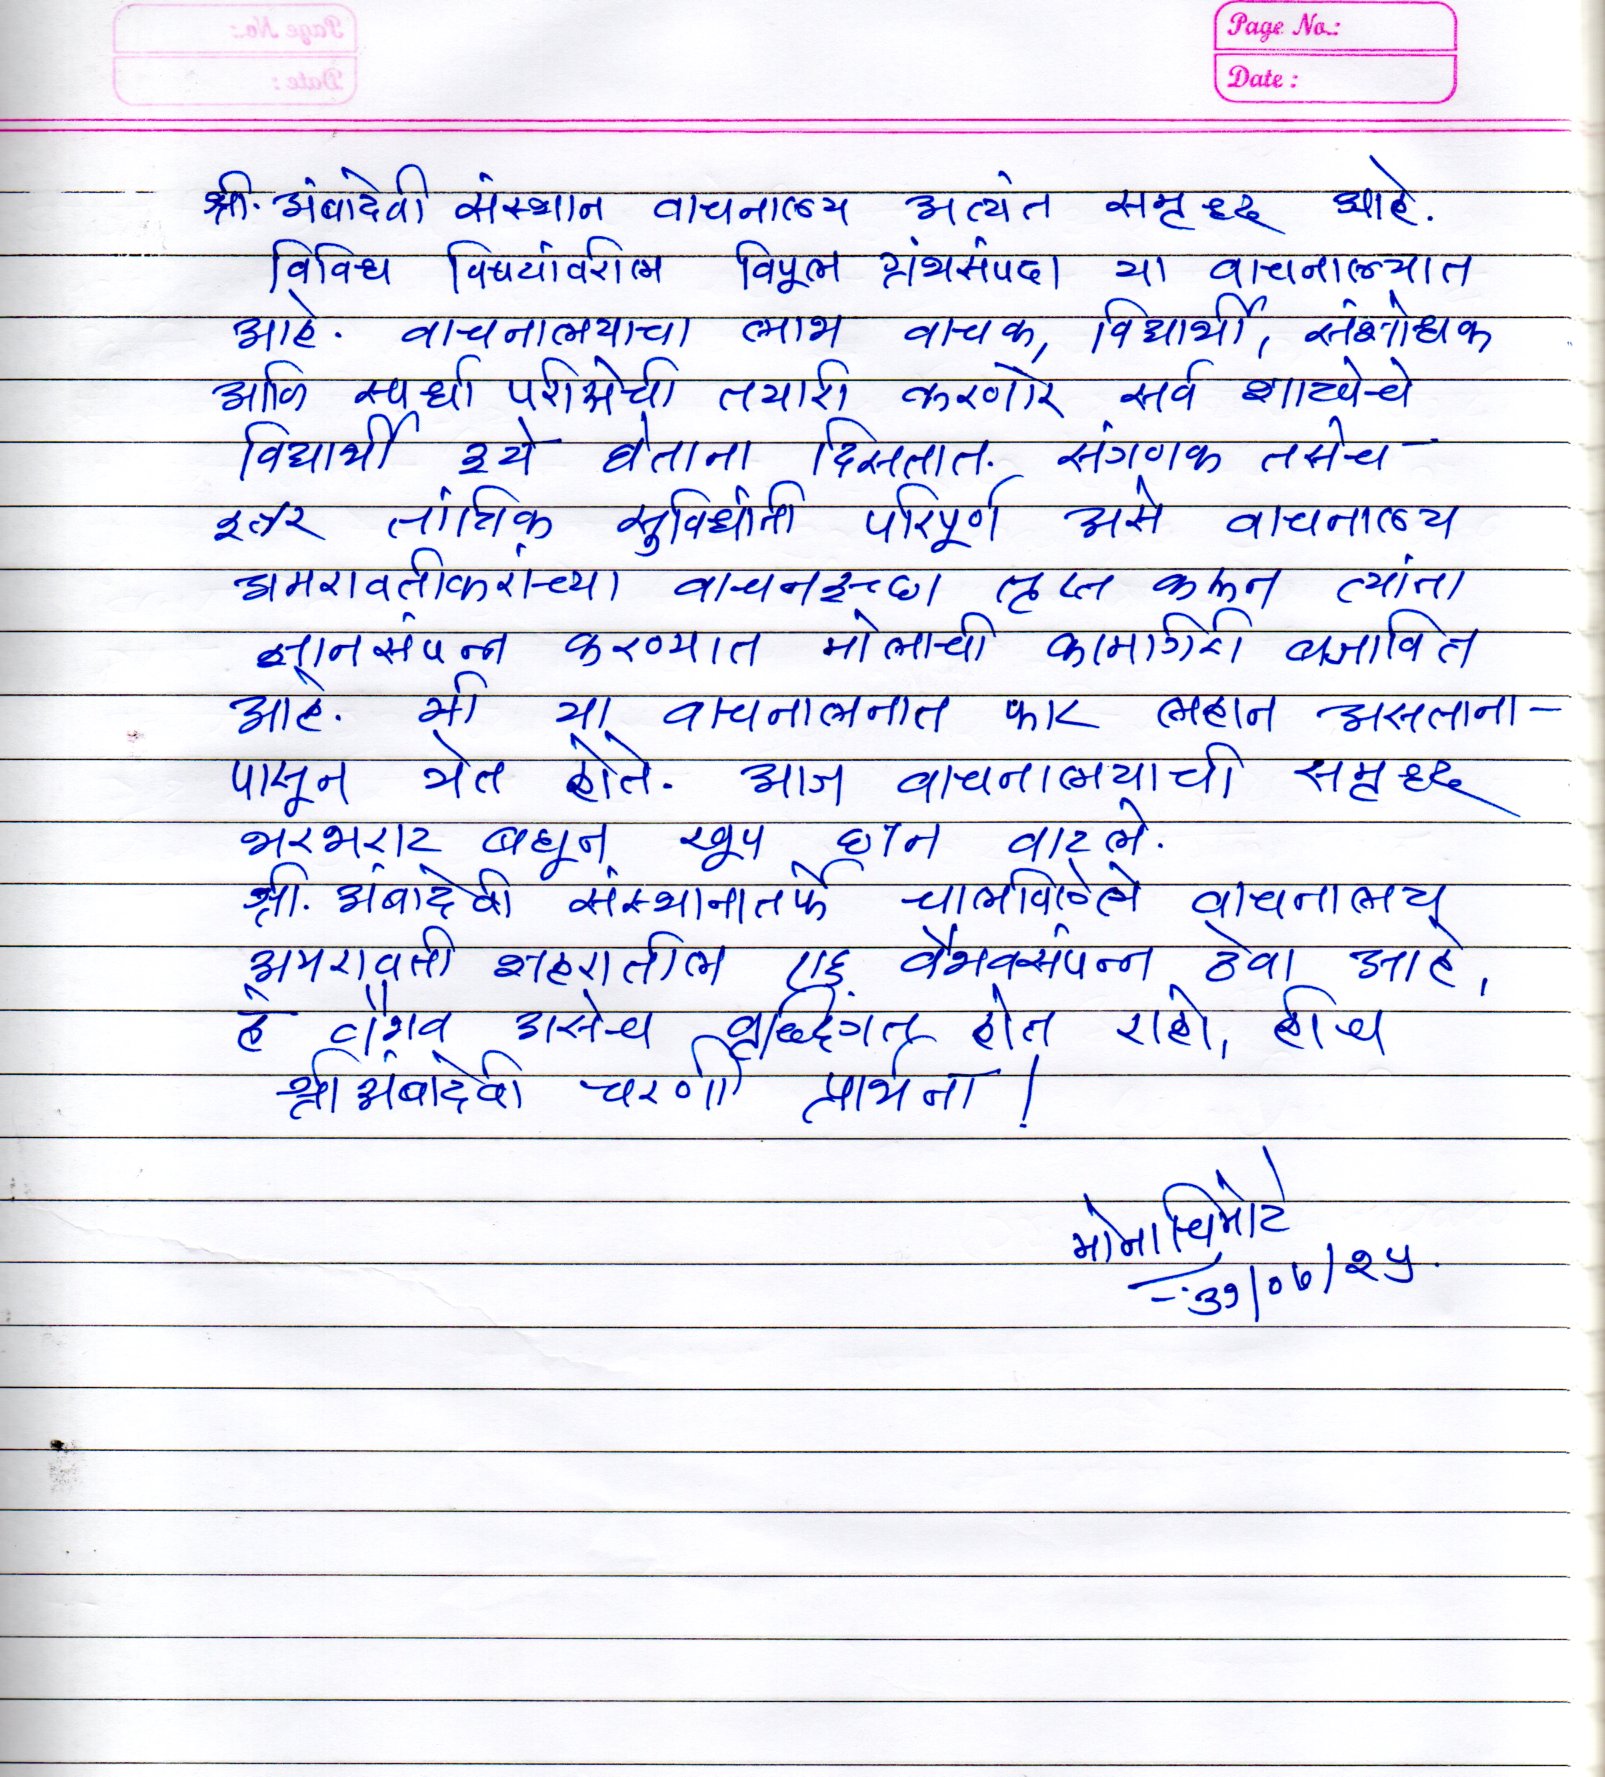 Page No.:
Date :
श्री. अंबादेवी संस्थान वाचनालय अत्यंत समृध्द आहे.
विविध विषयांवरील विपूल ग्रंथसंपदा या वाचनालयात
आहे. वाचनालयाचा लाभ वाचक, विद्यार्थी, संशोधक
आणि स्पर्धा परीक्षेची तयारी करणारे सर्व शाखेचे
विद्यार्थी इथे घेताना दिसतात. संगणक तसेच
इतर तांत्रिक सुविधांनी परिपूर्ण असे वाचनालय
अमरावतीकरांच्या वाचनइच्छा तृप्त करून त्यांना
ज्ञानसंपन्न करण्यात मोलाची कामगिरी बजावित
आहे. मी या वाचनालनात फार लहान असताना-
पासून येत होते. आज वाचनालयाची समृध्द
भरभराट बघून खूप छान वाटले.
श्री. अंबादेवी संस्थानातर्फे चालविलेले वाचनालय
अमरावती शहरातील वैभवसंपन्न ठेवा आहे,
हे वैभव असेच वृध्दिंगत होत राहो, हीच
श्री अंबादेवी चरणी प्रार्थना!
मोना चिमोटे
३१/०७/२५.